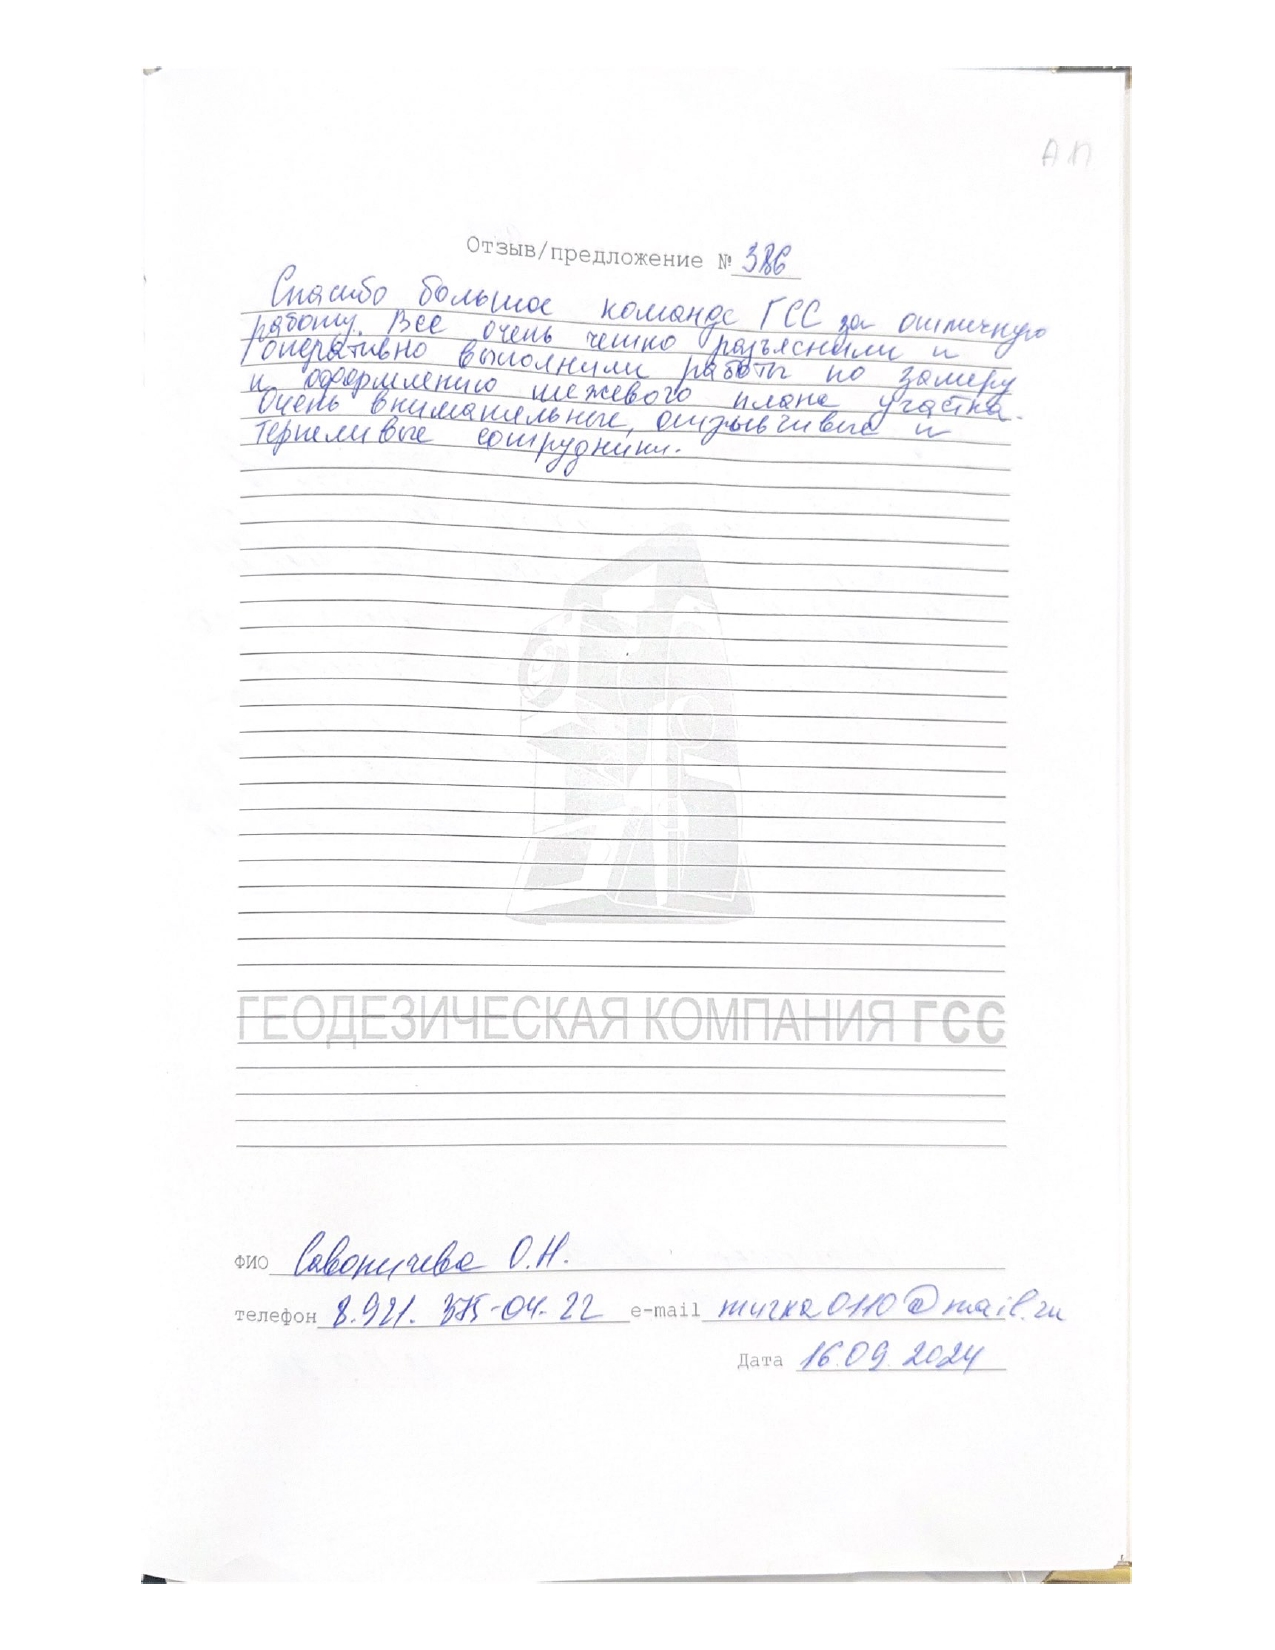 АП
Отзыв/предложение № 386
Спасибо большое команде ГСС за отличную
работу. Все очень четко разъяснили и
оперативно выполнили работы по замеру
и оформлению межевого плана участка.
Очень внимательные, отзывчивые и
терпеливые сотрудники.
ГЕОДЕЗИЧЕСКАЯ КОМПАНИЯ ГСС
ФИО Савоничева О.Н.
телефон 8.921. 375-04-22 e-mail murka0110@mail.ru
Дата 16.09.2024